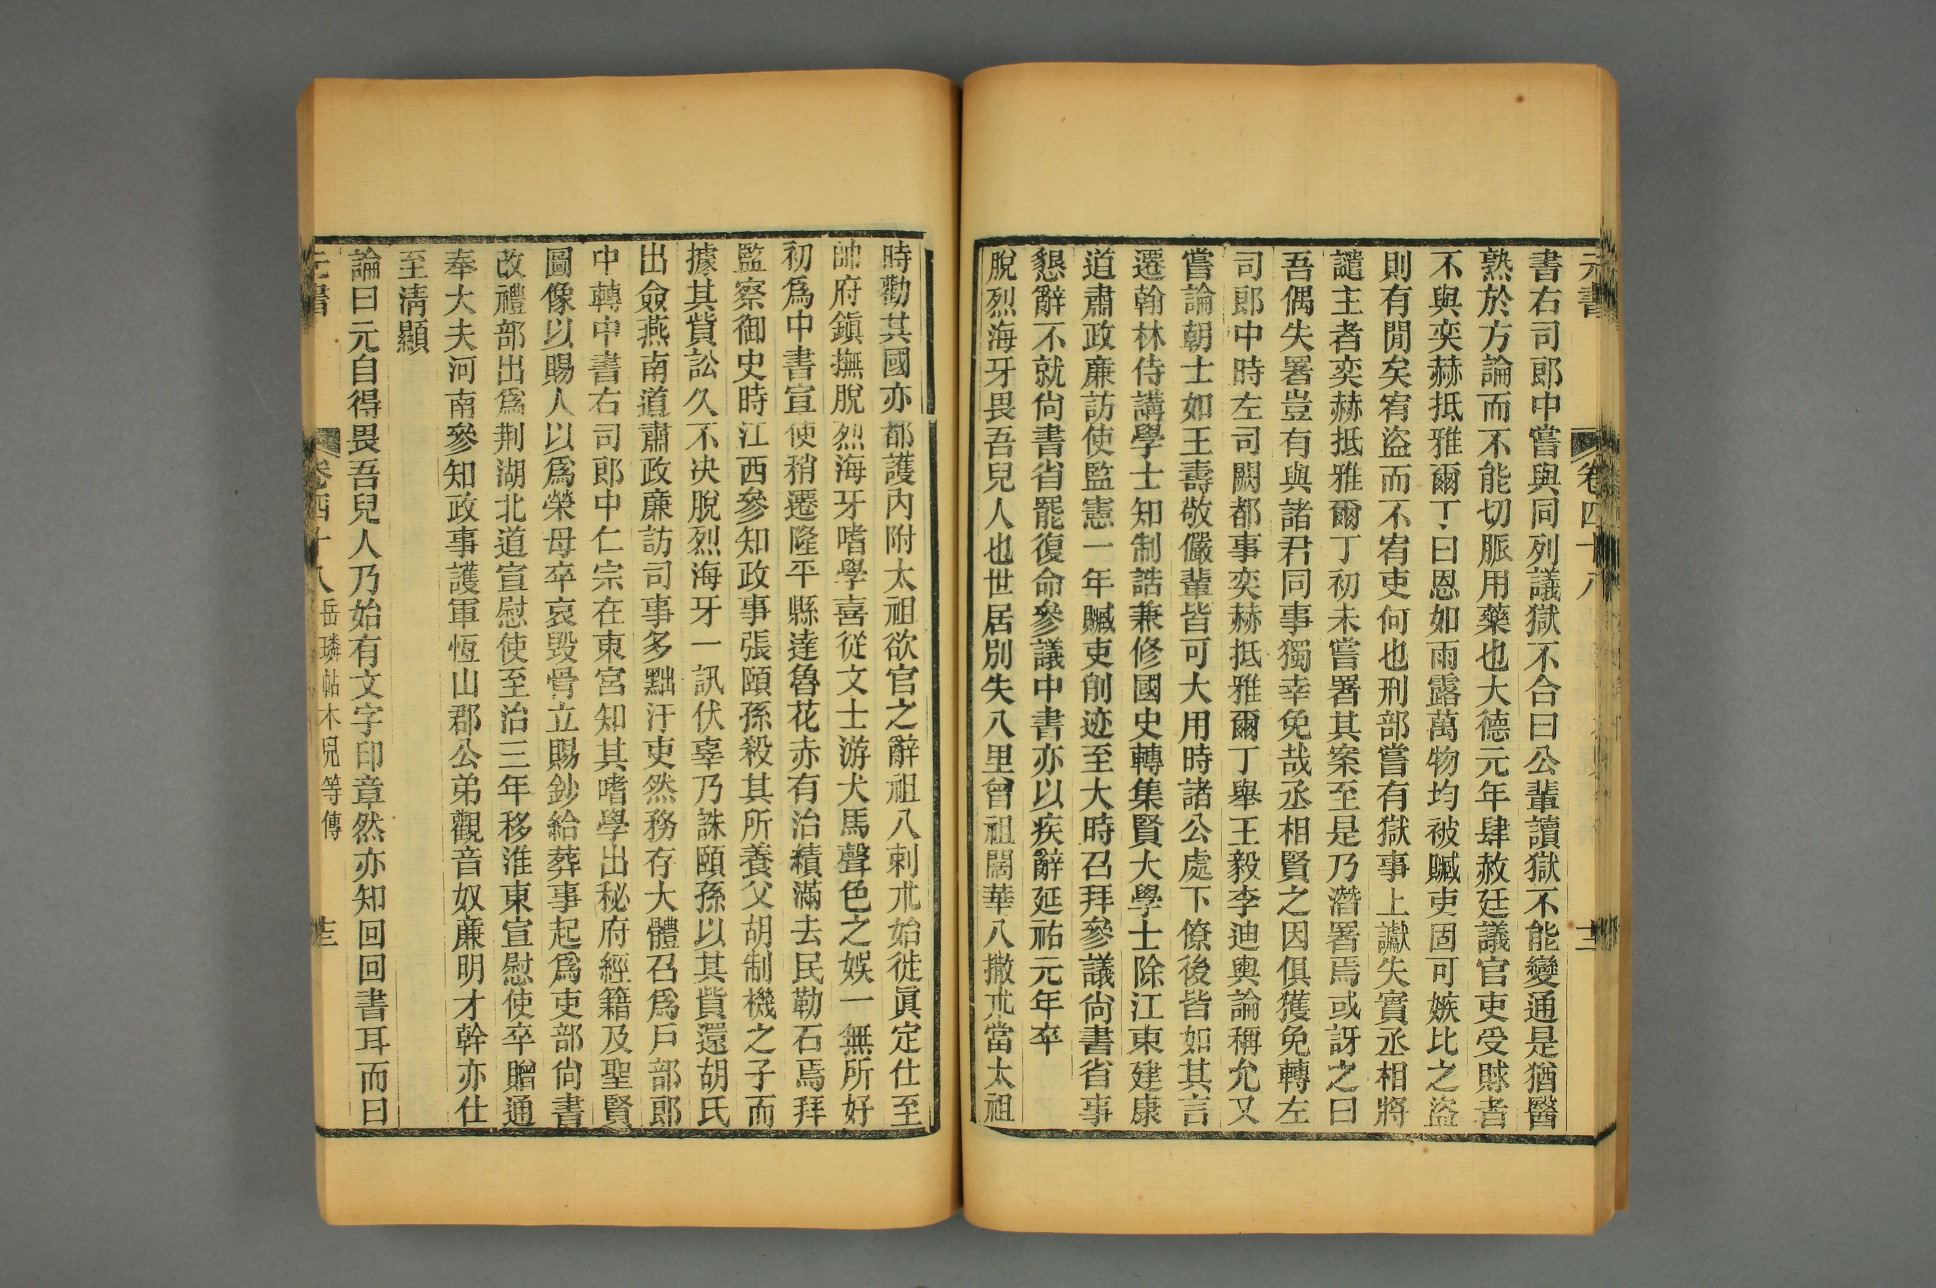 元書 卷四十八
書右司郎中嘗與同列議獄不合曰公輩讀獄不能變通是猶醫
熟於方論而不能切脈用藥也大德元年肆赦廷議官吏受賕者
不與奕赫抵雅爾丁曰恩如雨露萬物均被贓吏固可嫉比之盜
則有閒矣宥盜而不宥吏何也刑部嘗有獄事上讞失實丞相將
譴主者奕赫抵雅爾丁初未嘗署其案至是乃潛署焉或訝之曰
吾偶失署豈有與諸君同事獨幸免哉丞相賢之因俱獲免轉左
司郎中時左司闕都事奕赫抵雅爾丁舉王毅李迪輿論稱允又
嘗論朝士如王壽敬儼輩皆可大用時諸公處下僚後皆如其言
遷翰林侍講學士知制誥兼修國史轉集賢大學士除江東建康
道肅政廉訪使監憲一年贓吏削迹至大時召拜參議尚書省事
懇辭不就尚書省罷復命參議中書亦以疾辭延祐元年卒
脫烈海牙畏吾兒人也世居別失八里曾祖闊華八撒朮當太祖
時勸其國亦都護內附太祖欲官之辭祖八剌朮始徙眞定仕至
帥府鎭撫脫烈海牙嗜學喜從文士游犬馬聲色之娛一無所好
初爲中書宣使稍遷隆平縣達魯花赤有治績滿去民勒石焉拜
監察御史時江西參知政事張頤孫殺其所養父胡制機之子而
據其貲訟久不決脫烈海牙一訊伏辜乃誅頤孫以其貲還胡氏
出僉燕南道肅政廉訪司事多黜汙吏然務存大體召爲戶部郎
中轉中書右司郎中仁宗在東宮知其嗜學出秘府經籍及聖賢
圖像以賜人以爲榮母卒哀毀骨立賜鈔給葬事起爲吏部尚書
改禮部出爲荆湖北道宣慰使至治三年移淮東宣慰使卒贈通
奉大夫河南參知政事護軍恆山郡公弟觀音奴廉明才幹亦仕
至淸顯
論曰元自得畏吾兒人乃始有文字印章然亦知回回書耳而曰
元書 卷四十八 岳璘帖木兒等傳